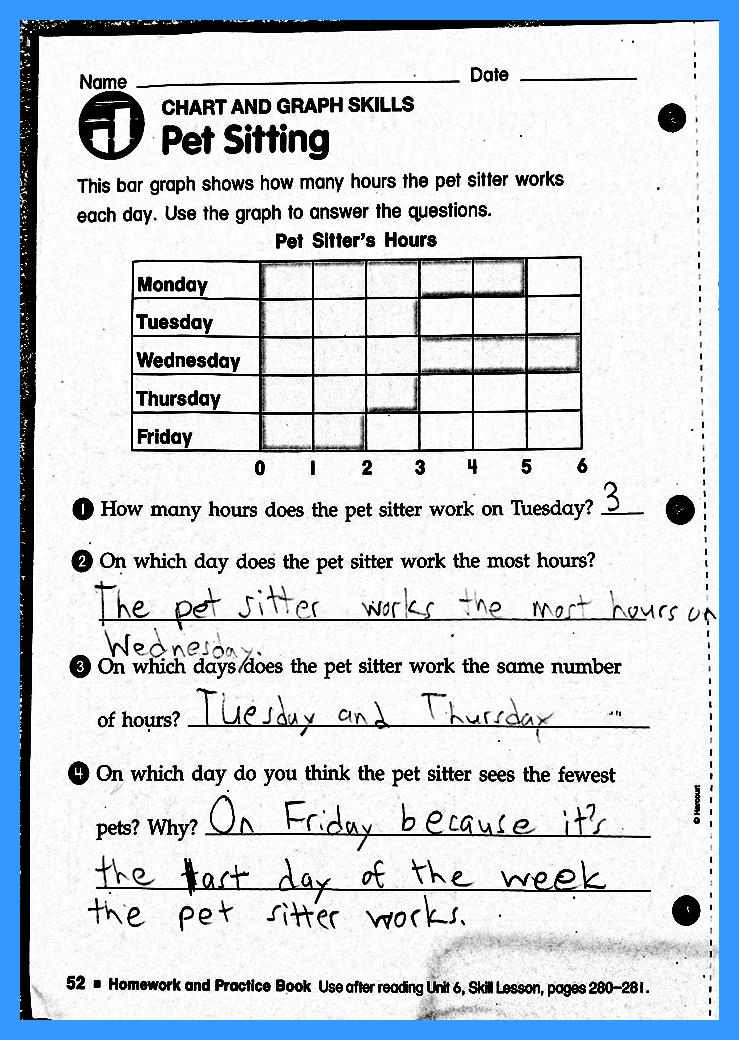 Name Date
CHART AND GRAPH SKILLS
Pet Sitting
This bar graph shows how many hours the pet sitter works
each day. Use the graph to answer the questions.
Pet Sitter's Hours
Monday
Tuesday
Wednesday
Thursday
Friday
0 1 2 3 4 5 6
1 How many hours does the pet sitter work on Tuesday? 3
2 On which day does the pet sitter work the most hours?
The pet sitter works the most hours on
Wednesday.
3 On which days does the pet sitter work the same number
of hours? Tuesday and Thursday
4 On which day do you think the pet sitter sees the fewest
pets? Why? On Friday because it's
the last day of the week
the pet sitter works.
© Harcourt
52 ■ Homework and Practice Book Use after reading Unit 6, Skill Lesson, pages 280–281.